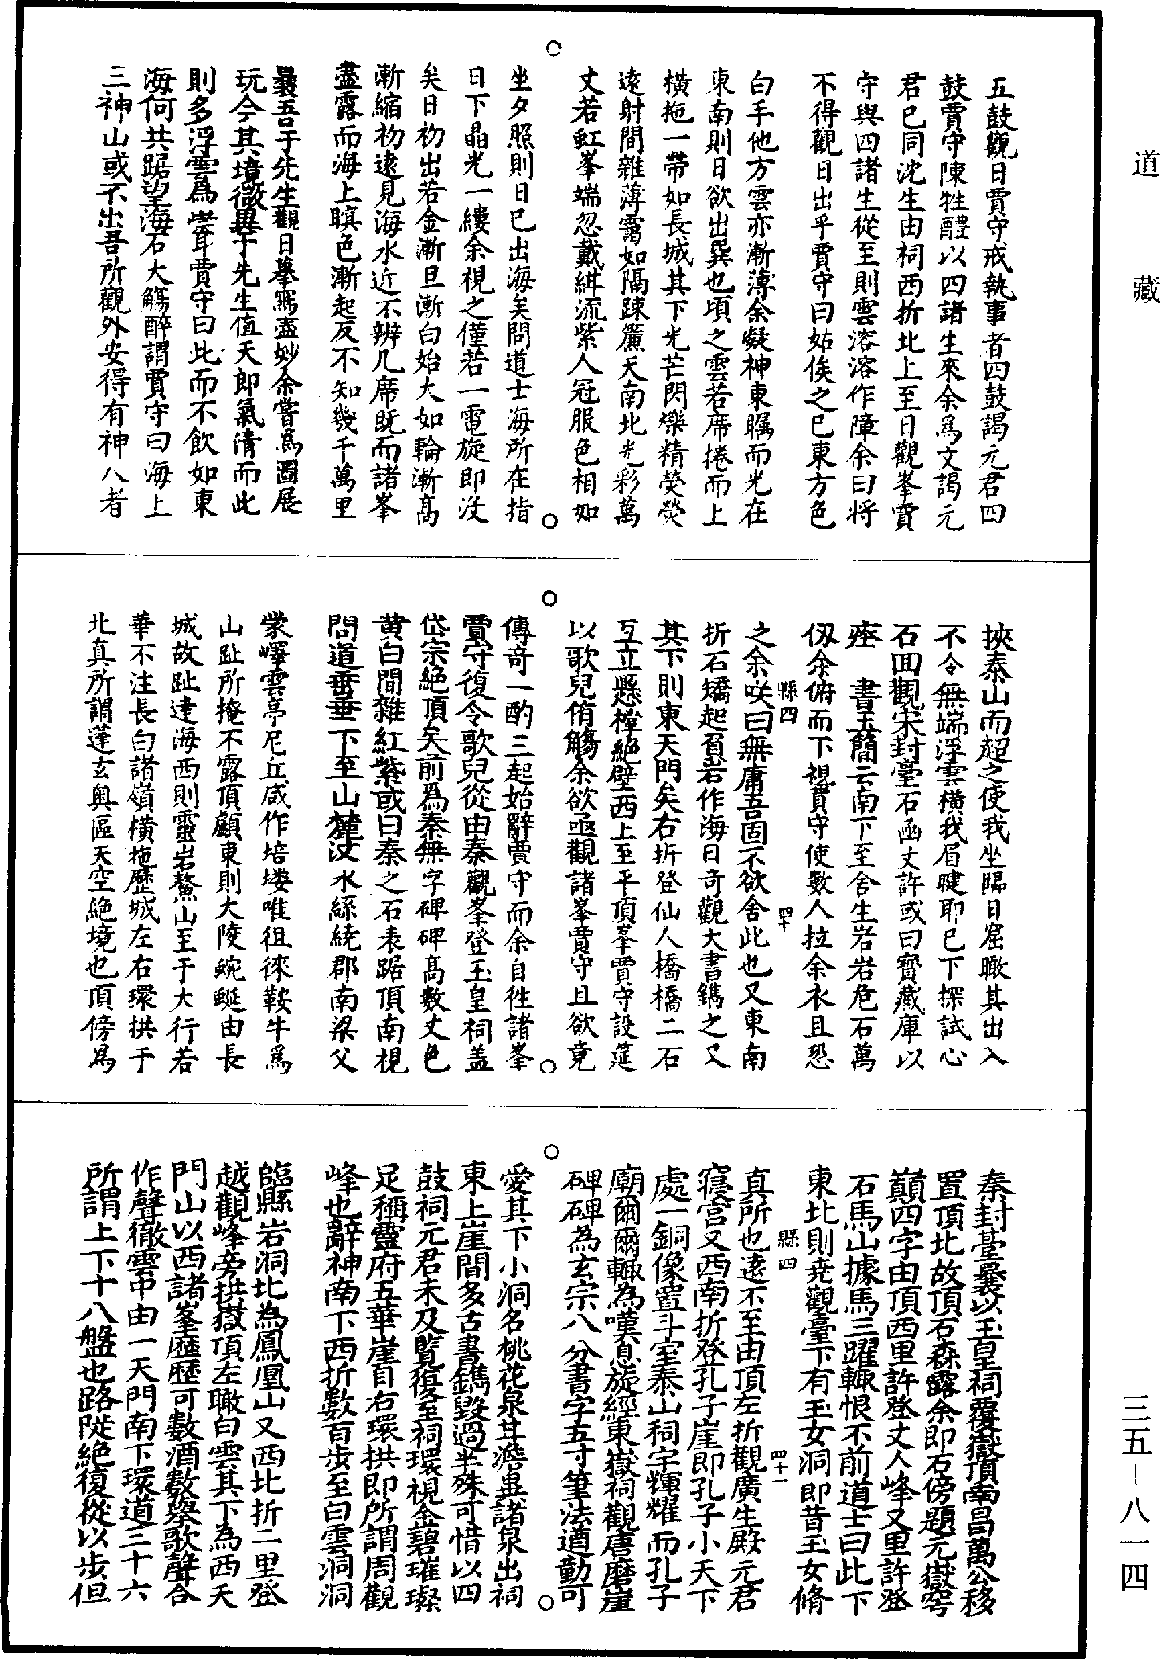 道藏
五鼓觀日賈守戒執事者四鼓謁元君四
鼓賈守陳牲醴以四諸生來余為文謁元
君已同沱生由祠西折北上至日觀峯賈
守與四諸生從至則雲溶溶作障余曰將
不得觀日出乎賈守曰姑俟之已東方色
白乎他方雲亦漸薄余凝神東矚而光在
東南則日欲出巽也頃之雲若席捲而上
橫拖一帶如長城其下光芒閃爍精熒熒
遠射間雜薄靄如隔踈簾天南北光彩萬
丈若虹峯端忽戴絳流紫人冠服色相如
坐夕照則日已出海矣問道士海所在指
日下晶光一縷余視之僅若一電旋即沒
矣日初出若金漸旦漸白始大如輪漸高
漸縮初遠見海水近不辨几席既而諸峯
盡露而海上瞑色漸起反不知幾千萬里
曩吾于先生觀日摹寫盡妙余嘗為圖展
玩今其境徵畢于先生值天郎氣清而此
則多浮雲為崇耳賈守曰此而不飲如東
海何共踞望海石大觴醉謂賈守曰海上
三神山或不出吾所觀外安得有神人者
挾泰山而超之使我坐陽日窟瞰其出入
不令無端浮雲橫我眉睫耶已下探試心
石回觀宋封臺石函丈許或曰寶藏庫以
瘞 書玉簡云南下至舍生岩岩危石萬
仭余俯而下視賈守使數人拉余衣且恐
之余咲曰無庸吾固不欲舍此也又東南
縣四 四十
折石矯起頁岩作海日奇觀大書鐫之又
其下則東天門矣右折登仙人橋橋二石
互立懸檸絕壁西上至平頂峯賈守設筵
以歌兒侑觴余欲亟觀諸峯賈守且欲竟
傳奇一酌三起始辭賈守而余自徃諸峯
賈守復令歌兒從由秦觀峯登玉皇祠蓋
岱宗絕頂矣前為秦無字碑碑高數丈色
黃白間雜紅紫或曰秦之石表踞頂南視
問道垂垂下至山麓汶水絲繞郡南梁父
蒙嶧雲亭尼丘咸作培塿唯徂徠鞍牛為
山趾所掩不露頂顧東則大陵蜿蜒由長
城故趾達海西則靈岩鰲山至于大行若
華不注長白諸嶺橫拖歷城左右環拱于
北真所謂蓬玄奥區天空絕境也頂傍為
秦封臺曩以玉皇祠覆嶽頂南昌萬公移
置頂北故頂石森露余即石傍題元嶽穹
巔四字由頂西里許登丈人峰又里許登
石馬山據馬三躍輙恨不前道士曰此下
東北則堯觀臺下有玉女洞即昔玉女脩
真所也遠不至由頂左折觀廣生殿元君
縣四 四十一
寢宮又西南折登孔子崖即孔子小天下
處一銅像置斗室泰山祠宇輝耀而孔子
廟爾爾輙為嘆息旋經東嶽祠觀唐磨崖
碑碑為玄宗八分書字五寸筆法遒勁可
愛其下小洞名桃花泉其瀵畫諸泉出祠
東上崖間多古書鐫毀過半殊可惜以四
鼓祠元君未及覧復至祠環視金碧璀璨
足稱靈府五華崖自右環拱即所謂周觀
峰也辭神南下西折數百步至白雲洞洞
臨縣岩洞北為鳳凰山又西北折二里登
越觀峰旁拱嶽頂左瞰白雲其下為西天
門山以西諸峯歷歷可數酒數舉歌聲合
作聲徹雲中由一天門南下環道三十六
所謂上下十八盤也路陡絕復從以步但
三五－八一四